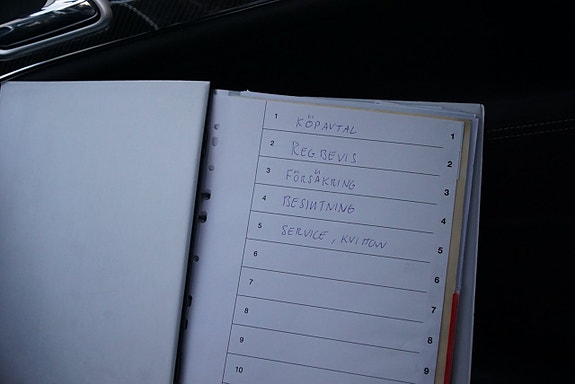 1 KÖPAVTAL 1
2 REG.BEVIS 2
3 FÖRSÄKRING 3
4 BESIKTNING 4
5 SERVICE, KVITTON 5
6 6
7 7
8 8
9 9
10